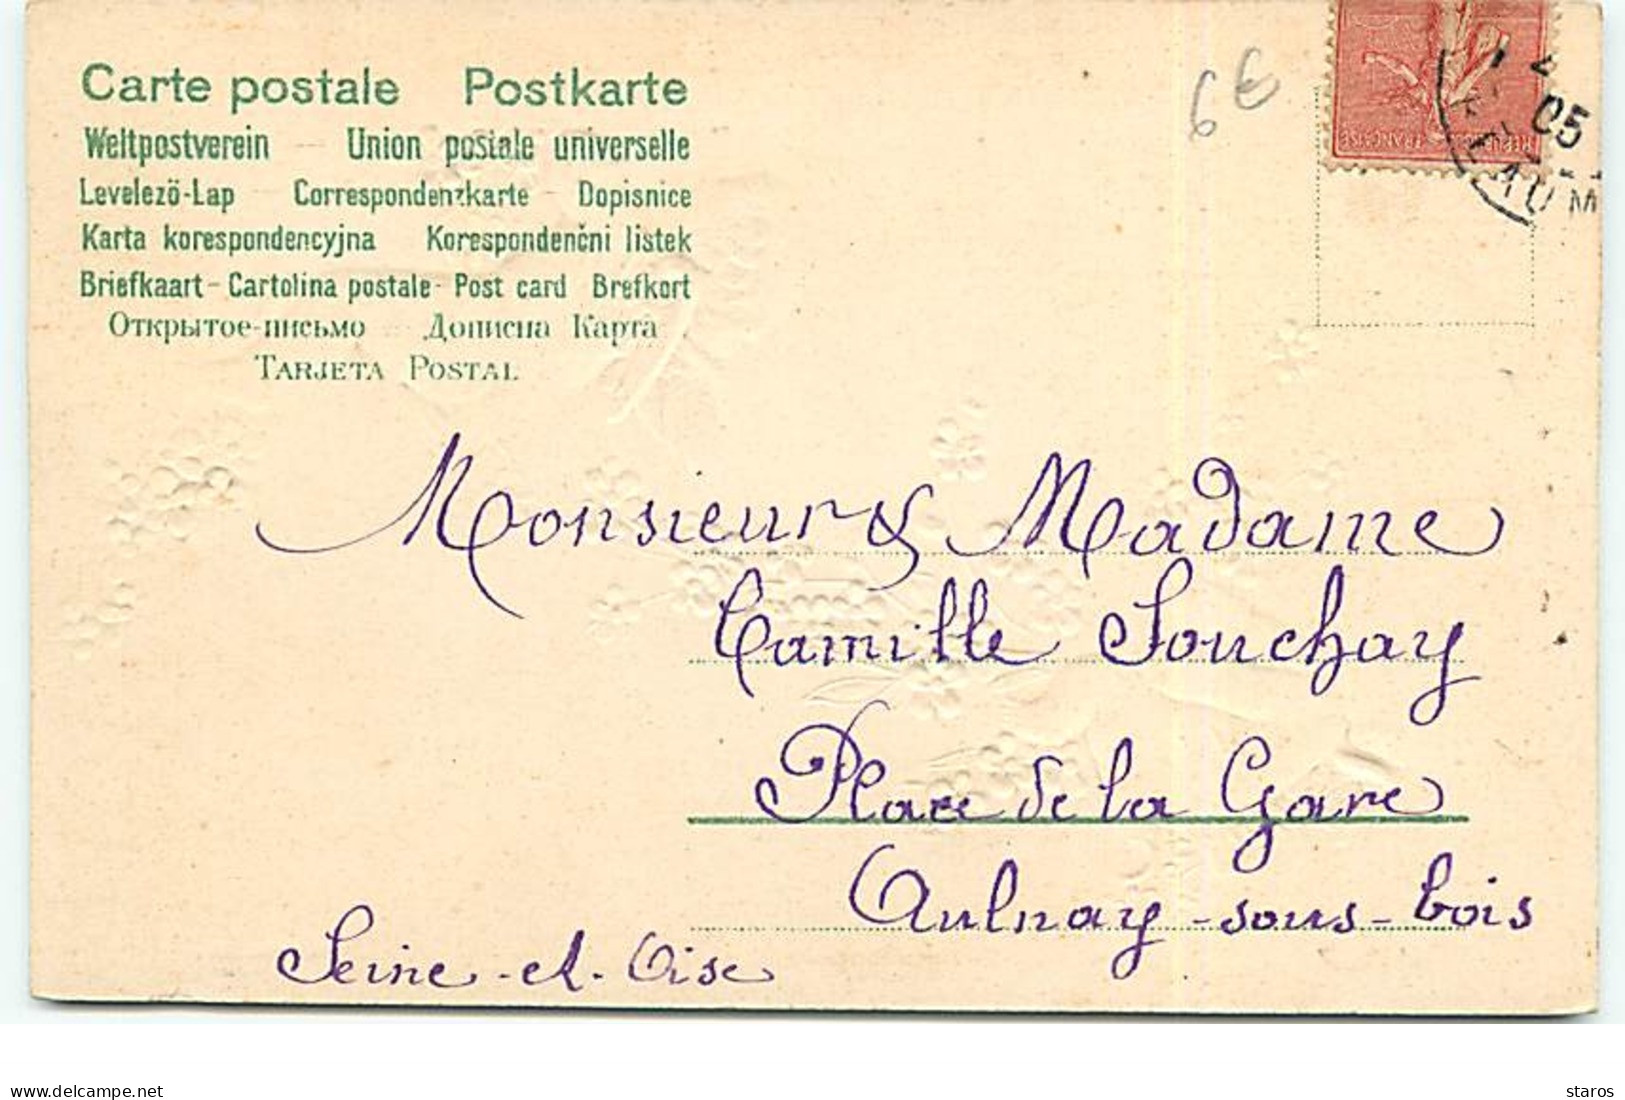 Carte postale Postkarte
Weltpostverein – Union postale universelle
Levelező-Lap Correspondenzkarte – Dopisnice
Karta korespondencyjna Korespondenční listek
Briefkaart – Cartolina postale - Post card Brefkort
Открытое-письмо – Дописна Карта
TARJETA POSTAL
6 €
REPUBLIQUE FRANÇAISE
05
Monsieur & Madame
Camille Souchay
Place de la Gare
Aulnay-sous-bois
Seine-et-Oise
delcampe.net
staros